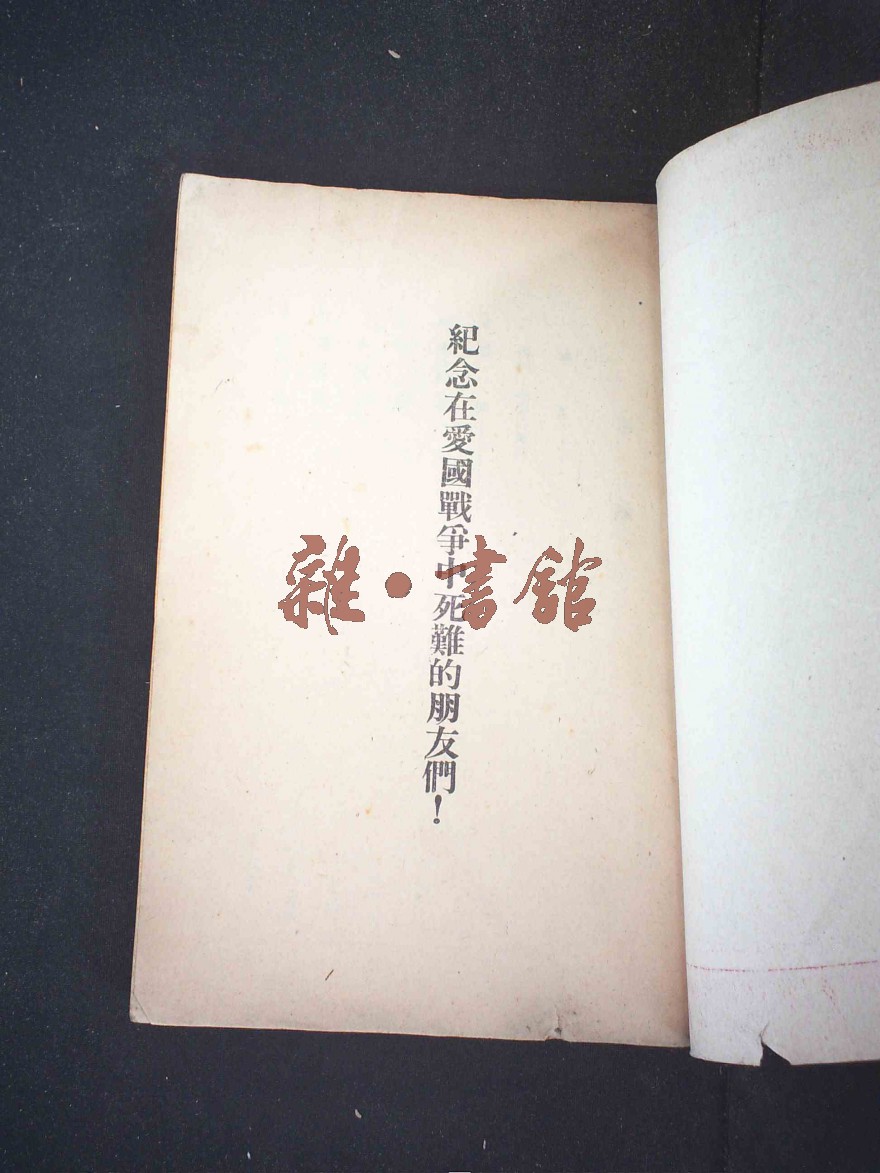 紀念在愛國戰爭中死難的朋友們！
雜·書館